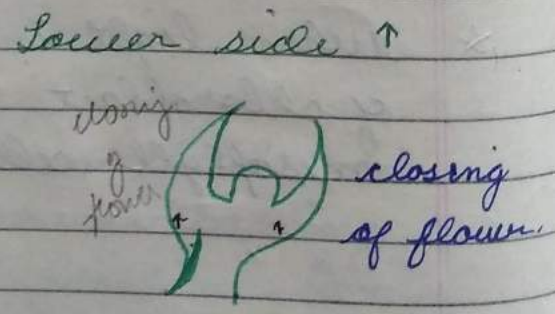 Lower side ↑
closing
of
flower
closing
of flower.